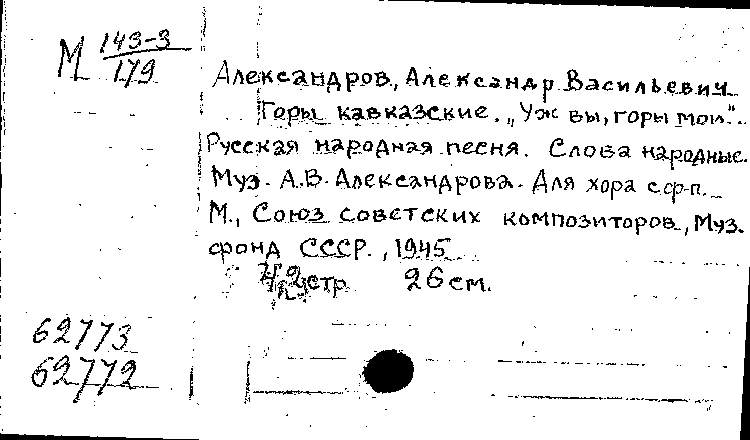 М 143-3
179
Александров, Александр Васильевич
Горы кавказские. „Уж вы, горы мои".
Русская народная песня. Слова народные.
Муз. А.В. Александрова. Для хора с ф-п.
М., Союз советских композиторов, Муз.
фонд СССР., 1945
стр 26 см.
62773
62772